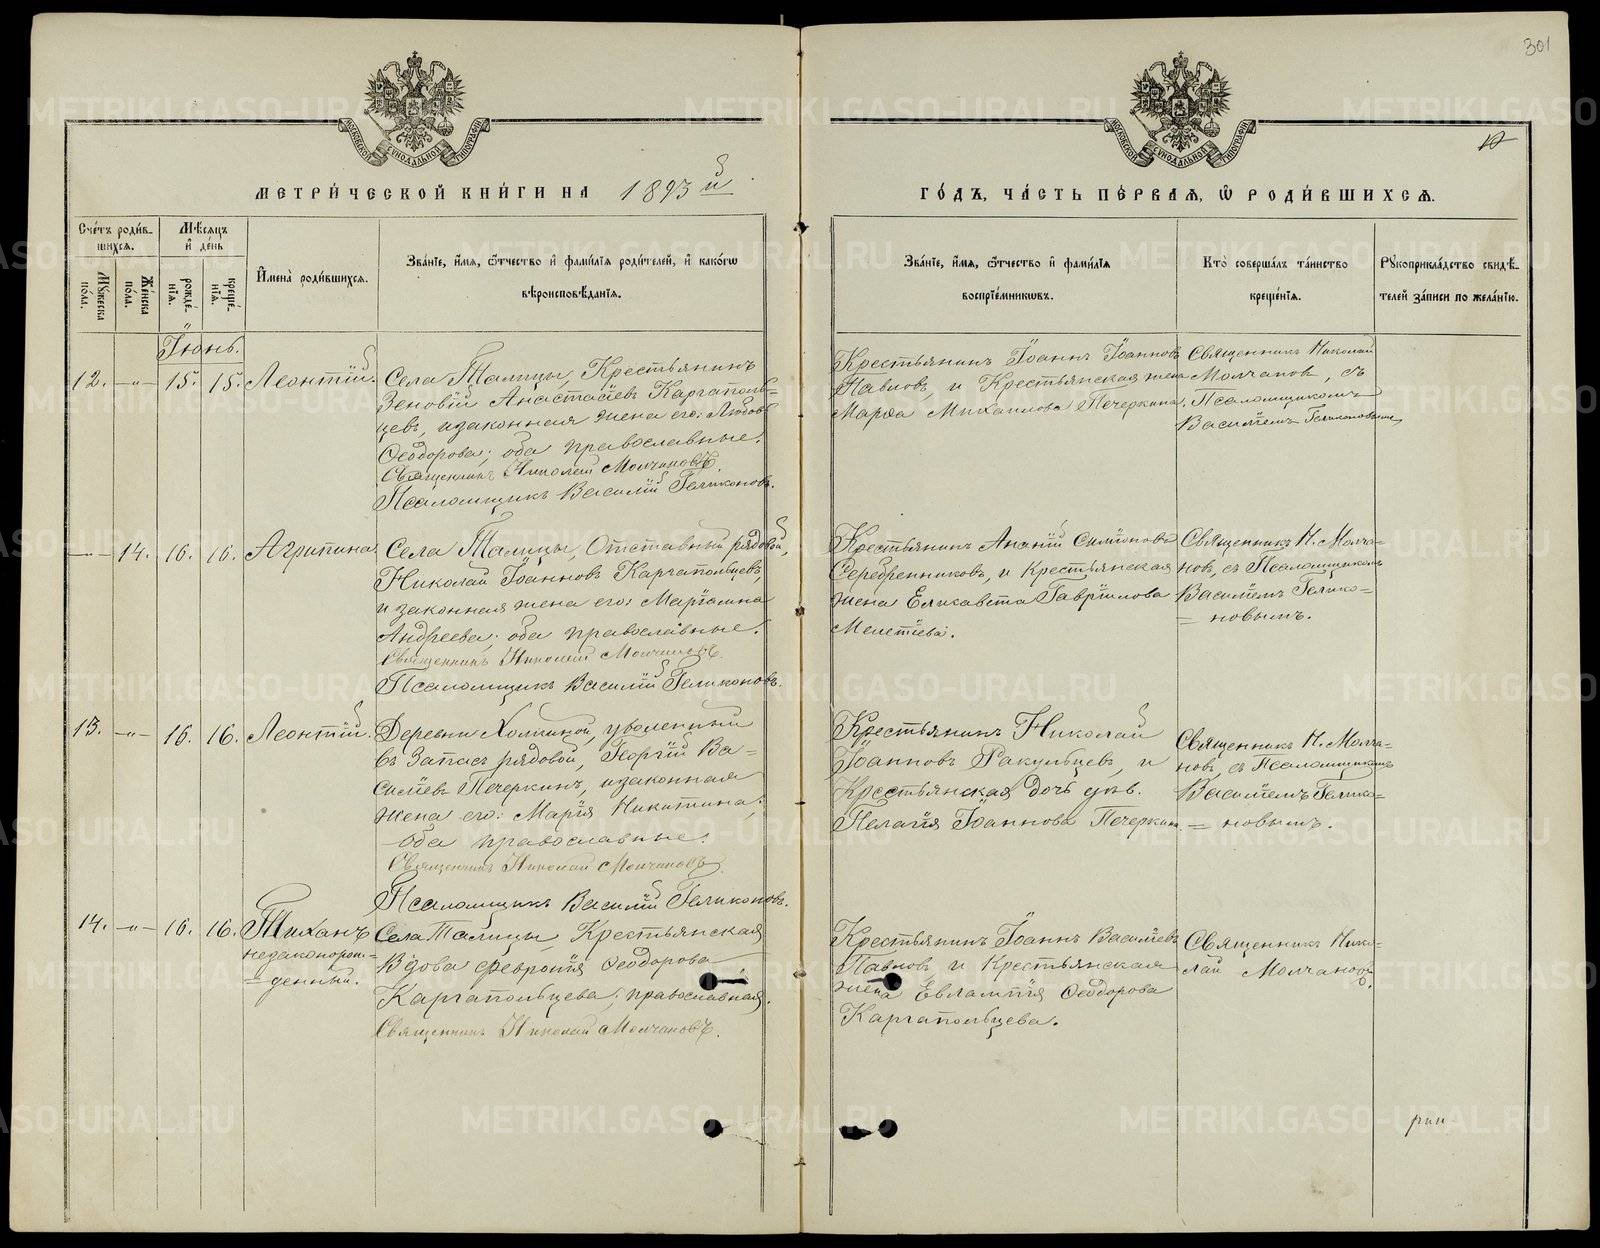 301
МОСКОВСКОЙ СѴНОДАЛЬНОЙ ТИПОГРАФІИ
МОСКОВСКОЙ СѴНОДАЛЬНОЙ ТИПОГРАФІИ
МЕТРИ́ЧЕСКОЙ КНИ́ГИ НА 1893й
ГО́ДЪ, ЧА́СТЬ ПЕ́РВАѦ, Ѡ҆ РОДИ́ВШИХСѦ.
Сче́тъ роди́в-
шихсѧ.
Мѣ́сѧцъ
и҆ де́нь
Мꙋ́жеска по́ла.
Же́нска по́ла.
рожде́-
нїѧ.
креще́-
нїѧ.
И҆мена̀ роди́вшихсѧ.
Зва́нїе, и҆́мѧ, ѻ҆́тчество и҆ фами́лїѧ роди́телей, и҆ како́гѡ
вѣроисповѣ́данїѧ.
Зва́нїе, и҆́мѧ, ѻ҆́тчество и҆ фами́лїѧ
воспрїе́мникѡвъ.
Кто̀ соверша́лъ та́инство
креще́нїѧ.
Рꙋкоприкла́дство свидѣ́-
телей за́писи по жела́нїю.
Іюнь.
12. -„- 15. 15. Леонтій.
Села Талицы, Крестьянинъ
Зеновій Анастасіевъ Каргаполь-
цевъ, изаконная жена его: Любовь
Ѳеодорова; оба православные.
Священникъ Николай Молчановъ.
Псаломщикъ Василій Геликоновъ.
Крестьянинъ Іоаннъ Іоанновъ
Павловъ, и Крестьянская жена
Марѳа Михаилова Печеркина.
Священникъ Николай
Молчановъ, съ
Псаломщикомъ
Василіемъ Геликоновымъ
-„- 14. 16. 16. Агрипина
Села Талицы, Отставный рядовой,
Николай Іоанновъ Каргапольцевъ,
и законная жена его: Маріамна
Андреева; оба православные.
Священникъ Николай Молчановъ.
Псаломщикъ Василій Геликоновъ.
Крестьянинъ Ананій Симіоновъ
Серебренниковъ, и Крестьянская
жена Елисавета Гавріилова
Мелетіева.
Священникъ Н. Молча-
новъ, съ Псаломщикомъ
Василіемъ Гелико-
= новымъ.
13. -„- 16. 16. Леонтій.
Деревни Холкиной, уволенный
въ Запасъ рядовой, Георгій Ва-
силіевъ Печеркинъ, изаконная
жена его: Марія Никитина;
оба православные.
Священникъ Николай Молчановъ
Псаломщикъ Василій Геликоновъ.
Крестьянинъ Николай
Іоанновъ Ракульцевъ, и
Крестьянская дочь дѣв.
Пелагія Іоаннова Печеркин.
Священникъ Н. Молча-
новъ, съ Псаломщикомъ
Василіемъ Гелико-
= новымъ.
14. -„- 16. 16. Тиханъ
незаконорож-
= денный.
Села Талицы, Крестьянская
Вдова Февронія Ѳеодорова
Каргапольцева; православная.
Священникъ Николай Молчановъ.
Крестьянинъ Іоаннъ Василіевъ
Павловъ и Крестьянская
жена Евлампія Ѳеодорова
Каргапольцева.
Священникъ Нико-
лай Молчановъ.
METRIKI.GASO-URAL.RU